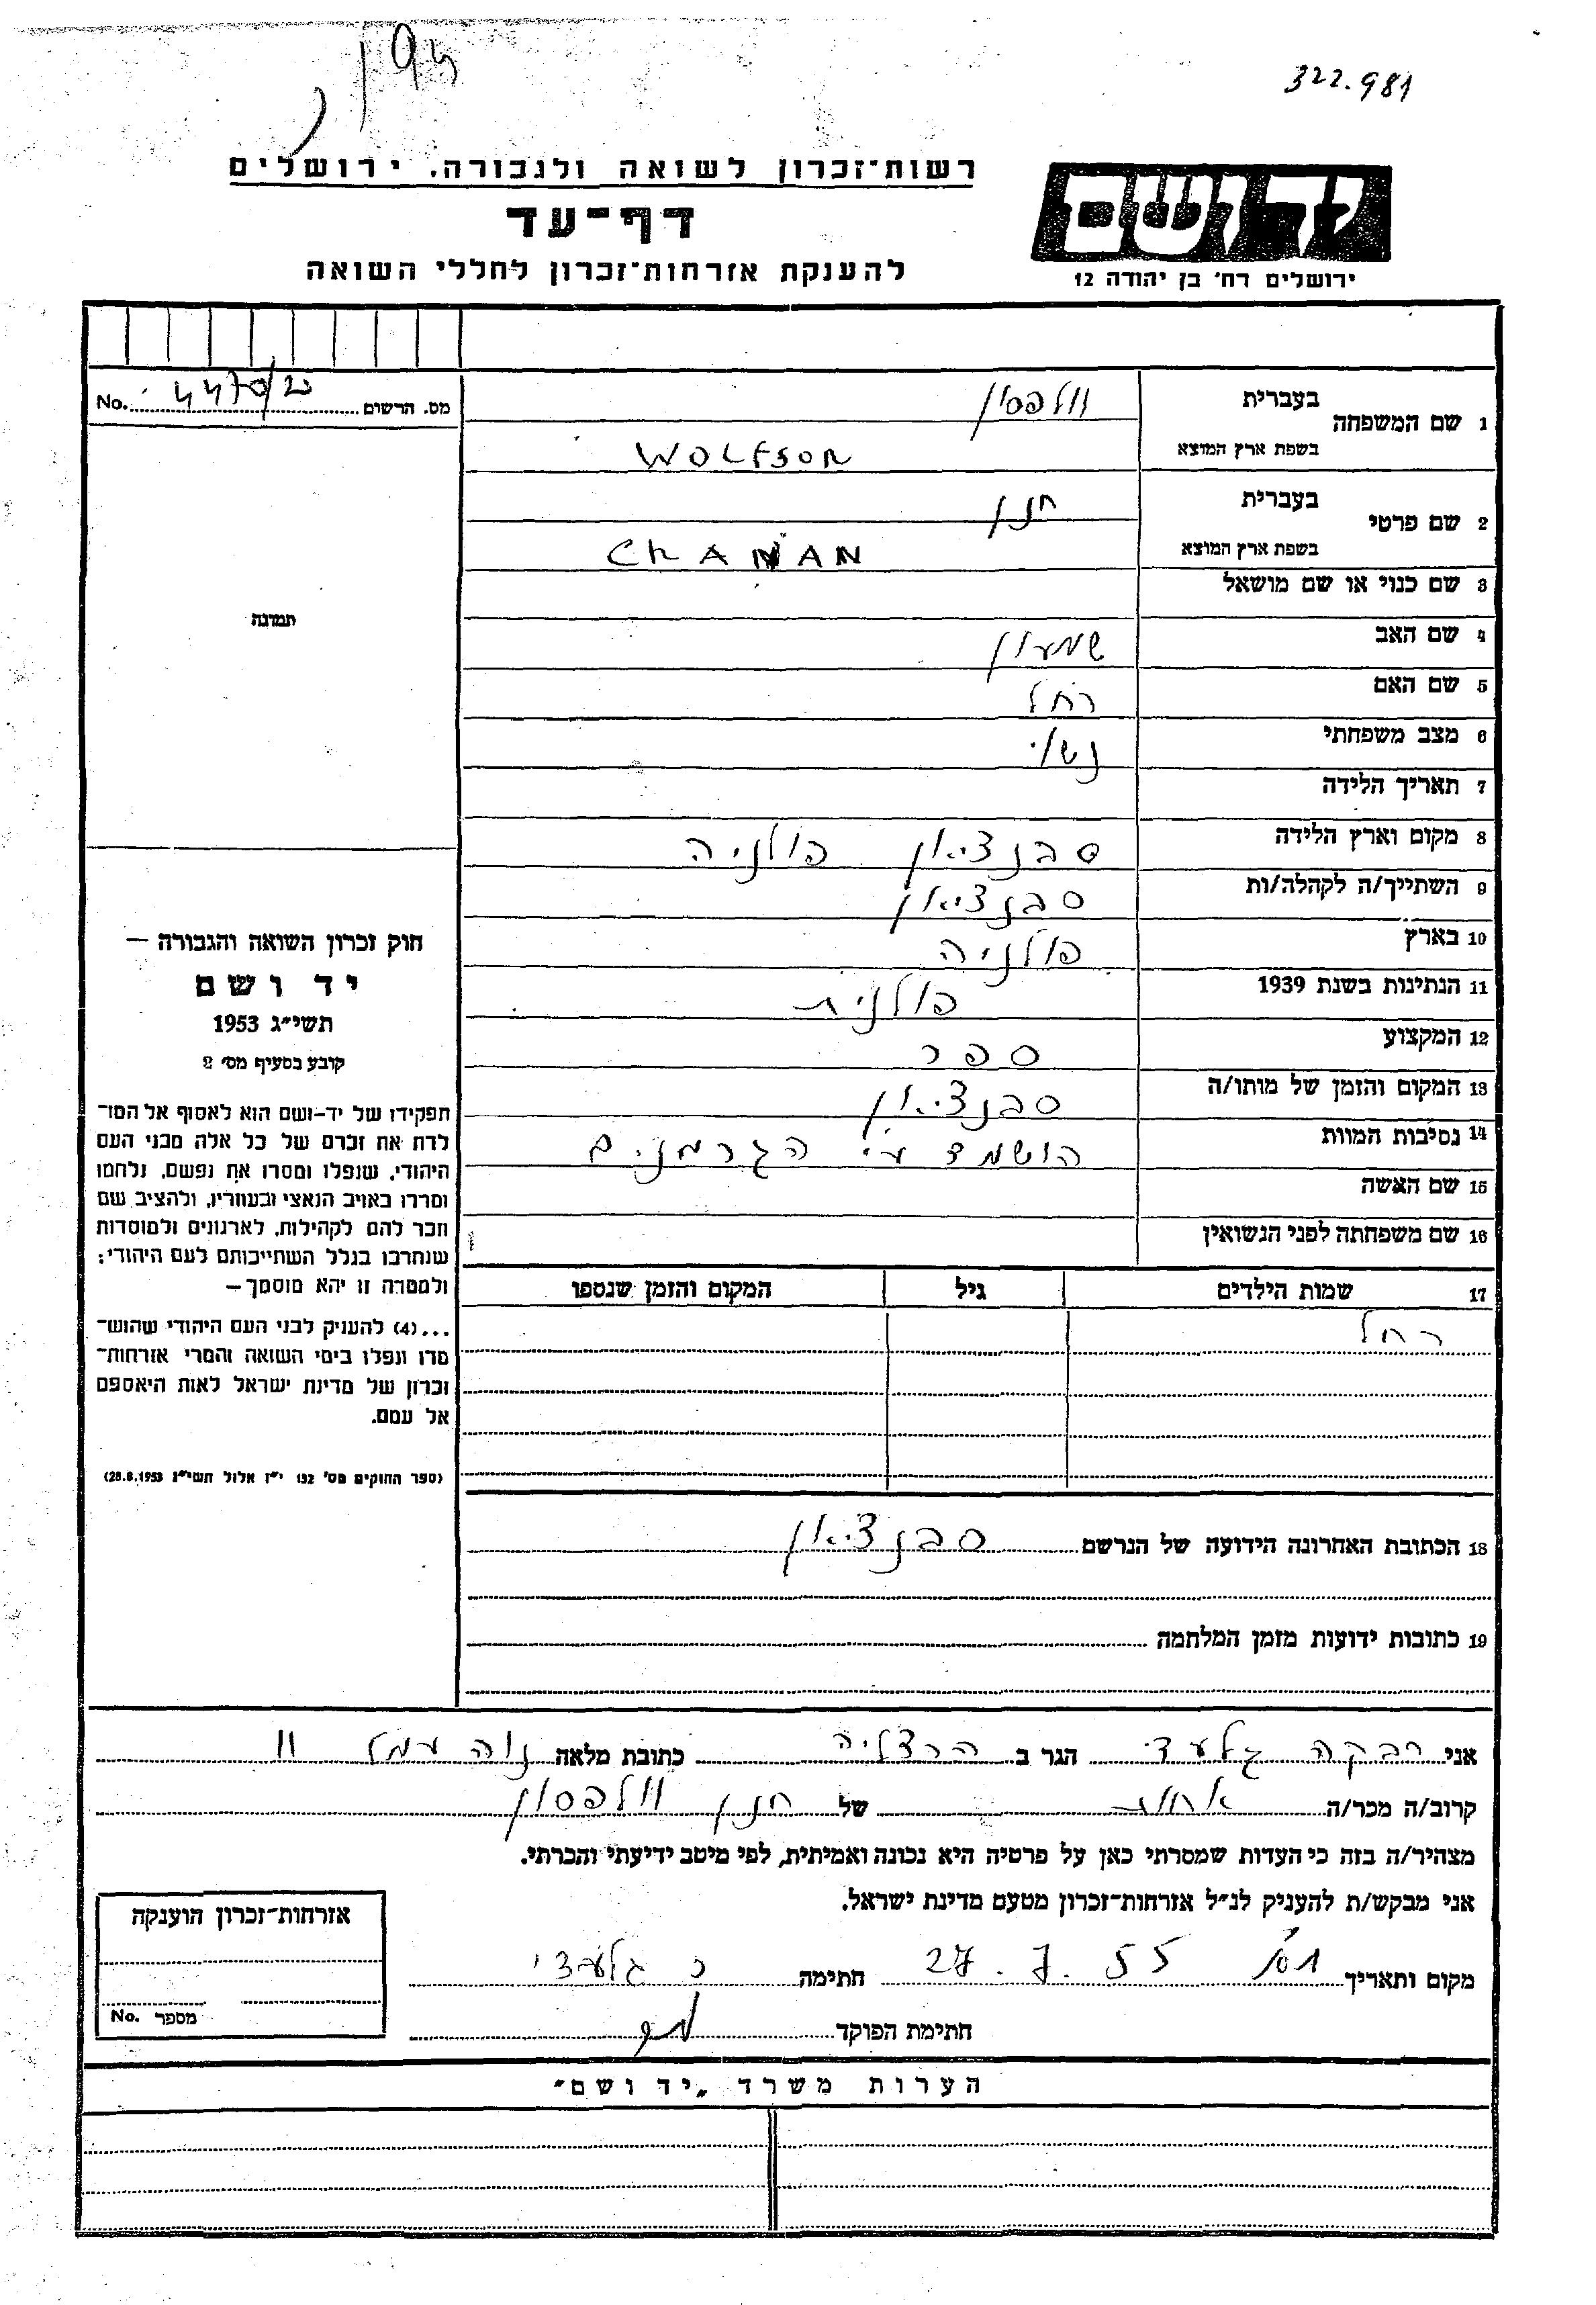 322.981
רשות־זכרון לשואה ולגבורה. ירושלים
יד ושם
דף־עד
להענקת אזרחות־זכרון לחללי השואה
ירושלים רח' בן יהודה 12
מס. הרשום No.
1 שם המשפחה בעברית וולפסון
בשפת ארץ המוצא WOLFSON
2 שם פרטי בעברית חנן
בשפת ארץ המוצא ChANAN
3 שם כנוי או שם מושאל
תמונה
4 שם האב שמעון
5 שם האם רחל
6 מצב משפחתי נשוי
7 תאריך הלידה
8 מקום וארץ הלידה סבנציאן פולניה
9 השתייך/ה לקהלה/ות סבנציאן
10 בארץ פולניה
11 הנתינות בשנת 1939 פולנית
12 המקצוע ספר
13 המקום והזמן של מותו/ה סבנציאן
14 נסיבות המוות הושמד ע״י הגרמנים
15 שם האשה
16 שם משפחתה לפני הנשואין
חוק זכרון השואה והגבורה —
יד ושם
תשי״ג 1953
קובע בסעיף מס׳ 2
תפקידו של יד-ושם הוא לאסוף אל המו־
לדת את זכרם של כל אלה מבני העם
היהודי, שנפלו ומסרו את נפשם, נלחמו
ומרדו באויב הנאצי ובעוזריו, ולהציב שם
וזכר להם לקהילות, לארגונים ולמוסדות
שנחרבו בגלל השתייכותם לעם היהודי;
ולמטרה זו יהא מוסמך —
...(4) להעניק לבני העם היהודי שהוש־
מדו ונפלו בימי השואה והמרי אזרחות־
זכרון של מדינת ישראל לאות היאספם
אל עמם.
(ספר החוקים מס׳ 132 י״ז אלול תשי״ג 28.8.1953)
17 שמות הילדים גיל המקום והזמן שנספו
רחל
18 הכתובת האחרונה הידועה של הנרשם סבנציאן
19 כתובות ידועות מזמן המלחמה
אני רבקה גלעדי הגר ב הרצליה כתובת מלאה נוה עמל 11
קרוב/ה מכר/ה אחות של חנן וולפסון
מצהיר/ה בזה כי העדות שמסרתי כאן על פרטיה היא נכונה ואמיתית, לפי מיטב ידיעתי והכרתי.
אני מבקש/ת להעניק לנ״ל אזרחות־זכרון מטעם מדינת ישראל.
מקום ותאריך 27.7.55 חתימה ר גלעדי
חתימת הפוקד
אזרחות־זכרון הוענקה
מספר No.
הערות משרד „יד ושם״